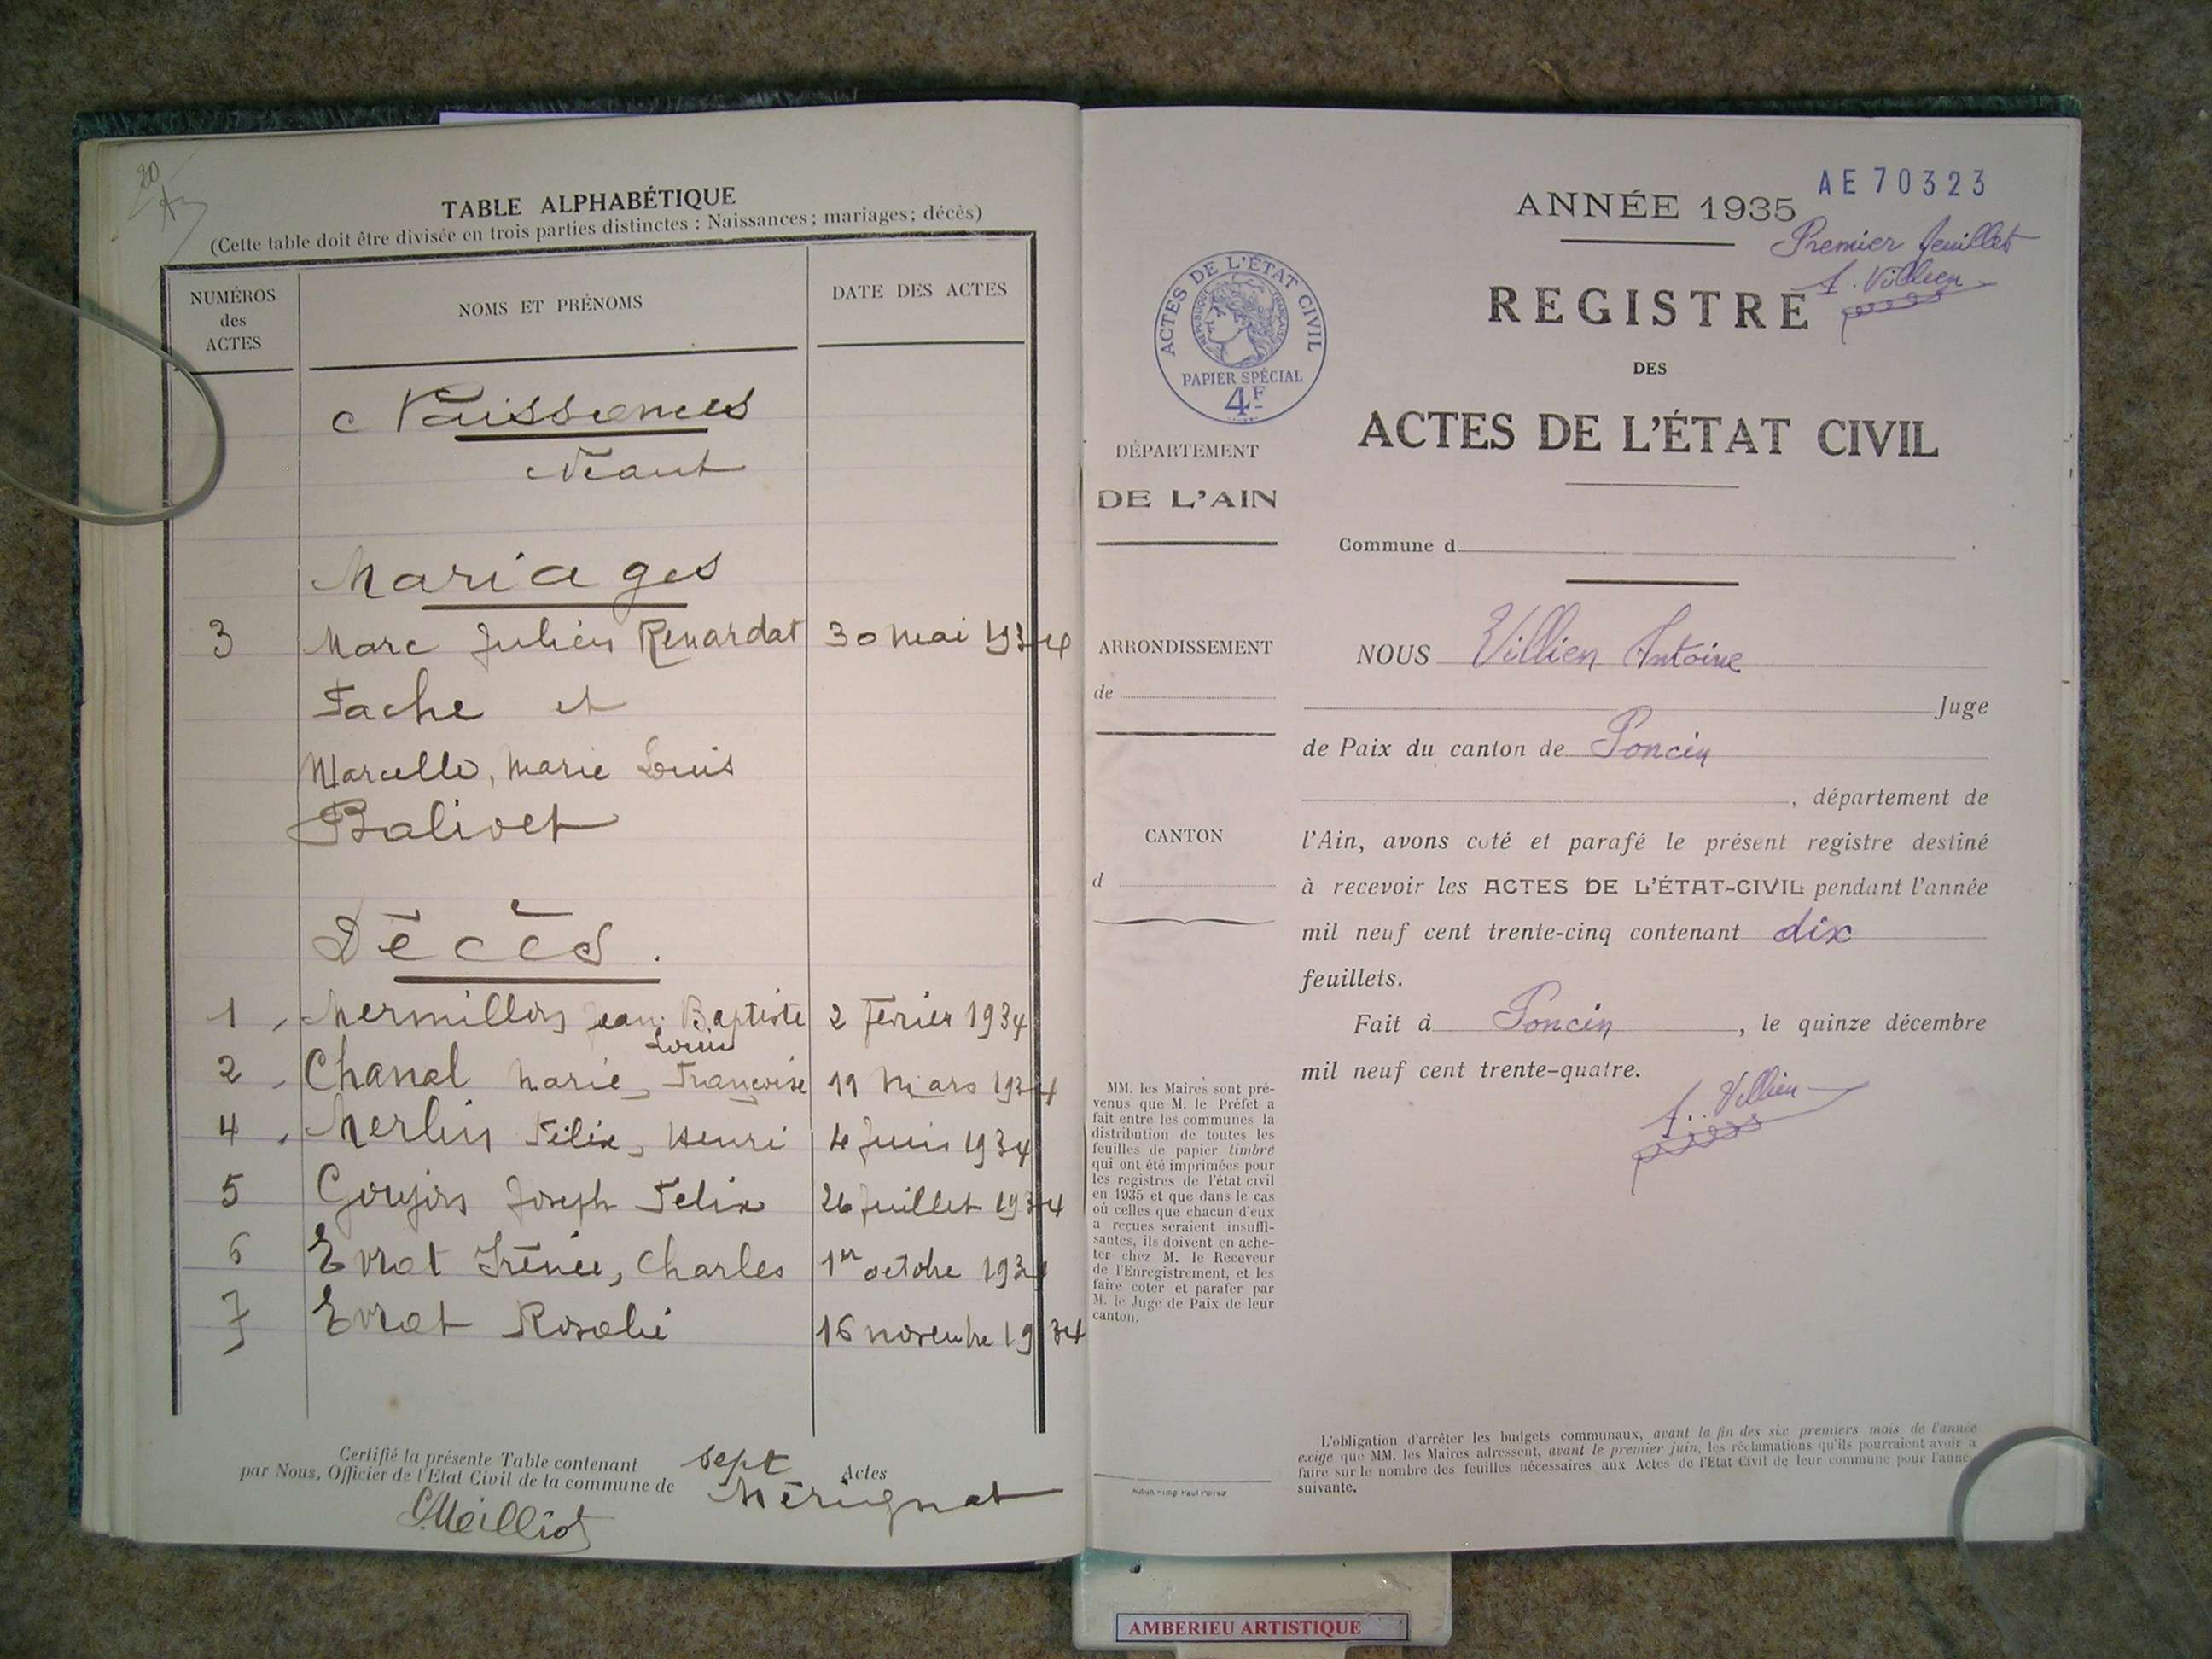 20
TABLE ALPHABÉTIQUE
(Cette table doit être divisée en trois parties distinctes : Naissances ; mariages ; décès)
NUMÉROS des ACTES
NOMS ET PRÉNOMS
DATE DES ACTES
Naissances
Néant
Mariages
3 Marc Julien Renardat 30 mai 1934
Fache et
Marcelle, Marie Louis
Balivet
Décès.
1 Mermillon Jean Baptiste 2 Février 1934
Louis
2 Chanel Marie, Françoise 19 Mars 1934
4 Merlin Félix, Henri 4 Juin 1934
5 Goujon Joseph Felix 26 Juillet 1934
6 Evrat Irénée, Charles 1er octobre 1934
7 Evrat Rosalie 16 novembre 1934
Certifié la présente Table contenant sept Actes
par Nous, Officier de l'Etat Civil de la commune de Mérignat
AE70323
ANNÉE 1935
Premier feuillet
A. Villien
REGISTRE
DES
ACTES DE L'ÉTAT CIVIL
ACTES DE L'ÉTAT CIVIL
RÉPUBLIQUE FRANÇAISE
PAPIER SPÉCIAL
4F
DÉPARTEMENT
DE L'AIN
Commune d
ARRONDISSEMENT
de
CANTON
d
NOUS Villien Antoine
Juge
de Paix du canton de Poncin
, département de
l'Ain, avons coté et parafé le présent registre destiné
à recevoir les ACTES DE L'ÉTAT-CIVIL pendant l'année
mil neuf cent trente-cinq contenant dix
feuillets.
Fait à Poncin, le quinze décembre
mil neuf cent trente-quatre.
A. Villien
MM. les Maires sont pré-
venus que M. le Préfet a
fait entre les communes la
distribution de toutes les
feuilles de papier timbré
qui ont été imprimées pour
les registres de l'état civil
en 1935 et que dans le cas
où celles que chacun d'eux
a reçues seraient insuffi-
santes, ils doivent en ache-
ter chez M. le Receveur
de l'Enregistrement, et les
faire coter et parafer par
M. le Juge de Paix de leur
canton.
L'obligation d'arrêter les budgets communaux, avant la fin des six premiers mois de l'année
exige que MM. les Maires adressent, avant le premier juin, les réclamations qu'ils pourraient avoir à
faire sur le nombre des feuilles nécessaires aux Actes de l'État Civil de leur commune pour l'année
suivante.
AMBERIEU ARTISTIQUE